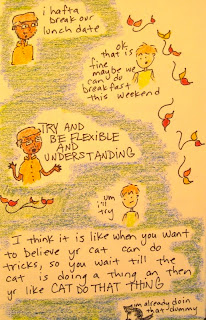 i hafta
break our
lunch date
ok
that is
fine
maybe we
can do
breakfast
this weekend
TRY AND
BE FLEXIBLE
AND
UNDERSTANDING
um
i'll
try
I think it is like when you want
to believe yr cat can do
tricks, so you wait till the
cat is doing a thing an then
yr like CAT DO THAT THING
im already doin
that dummy